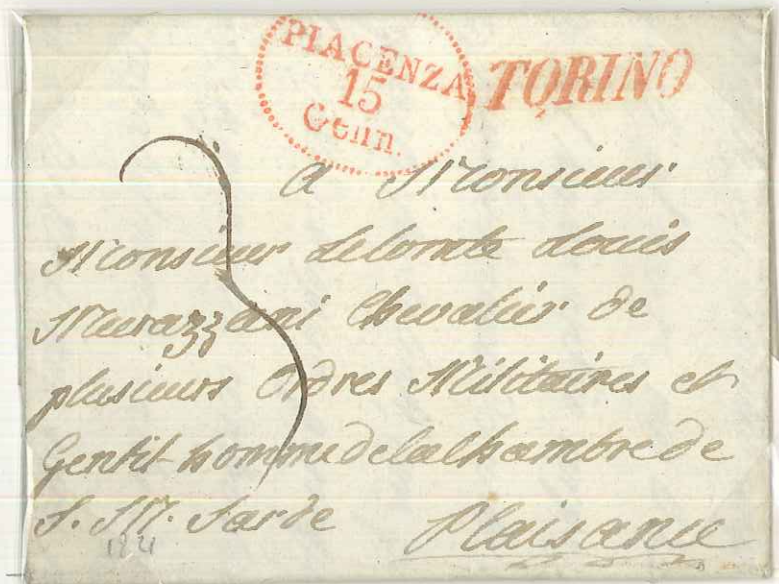 PIACENZA
15
Genn.
TORINO
3
A Monsieur
Monsieur Le Comte Louis
Murazzani Chevalier de
plusieurs Ordres Militaires et
Gentil-homme de la Chambre de
S. M. Sarde
Plaisance
1821